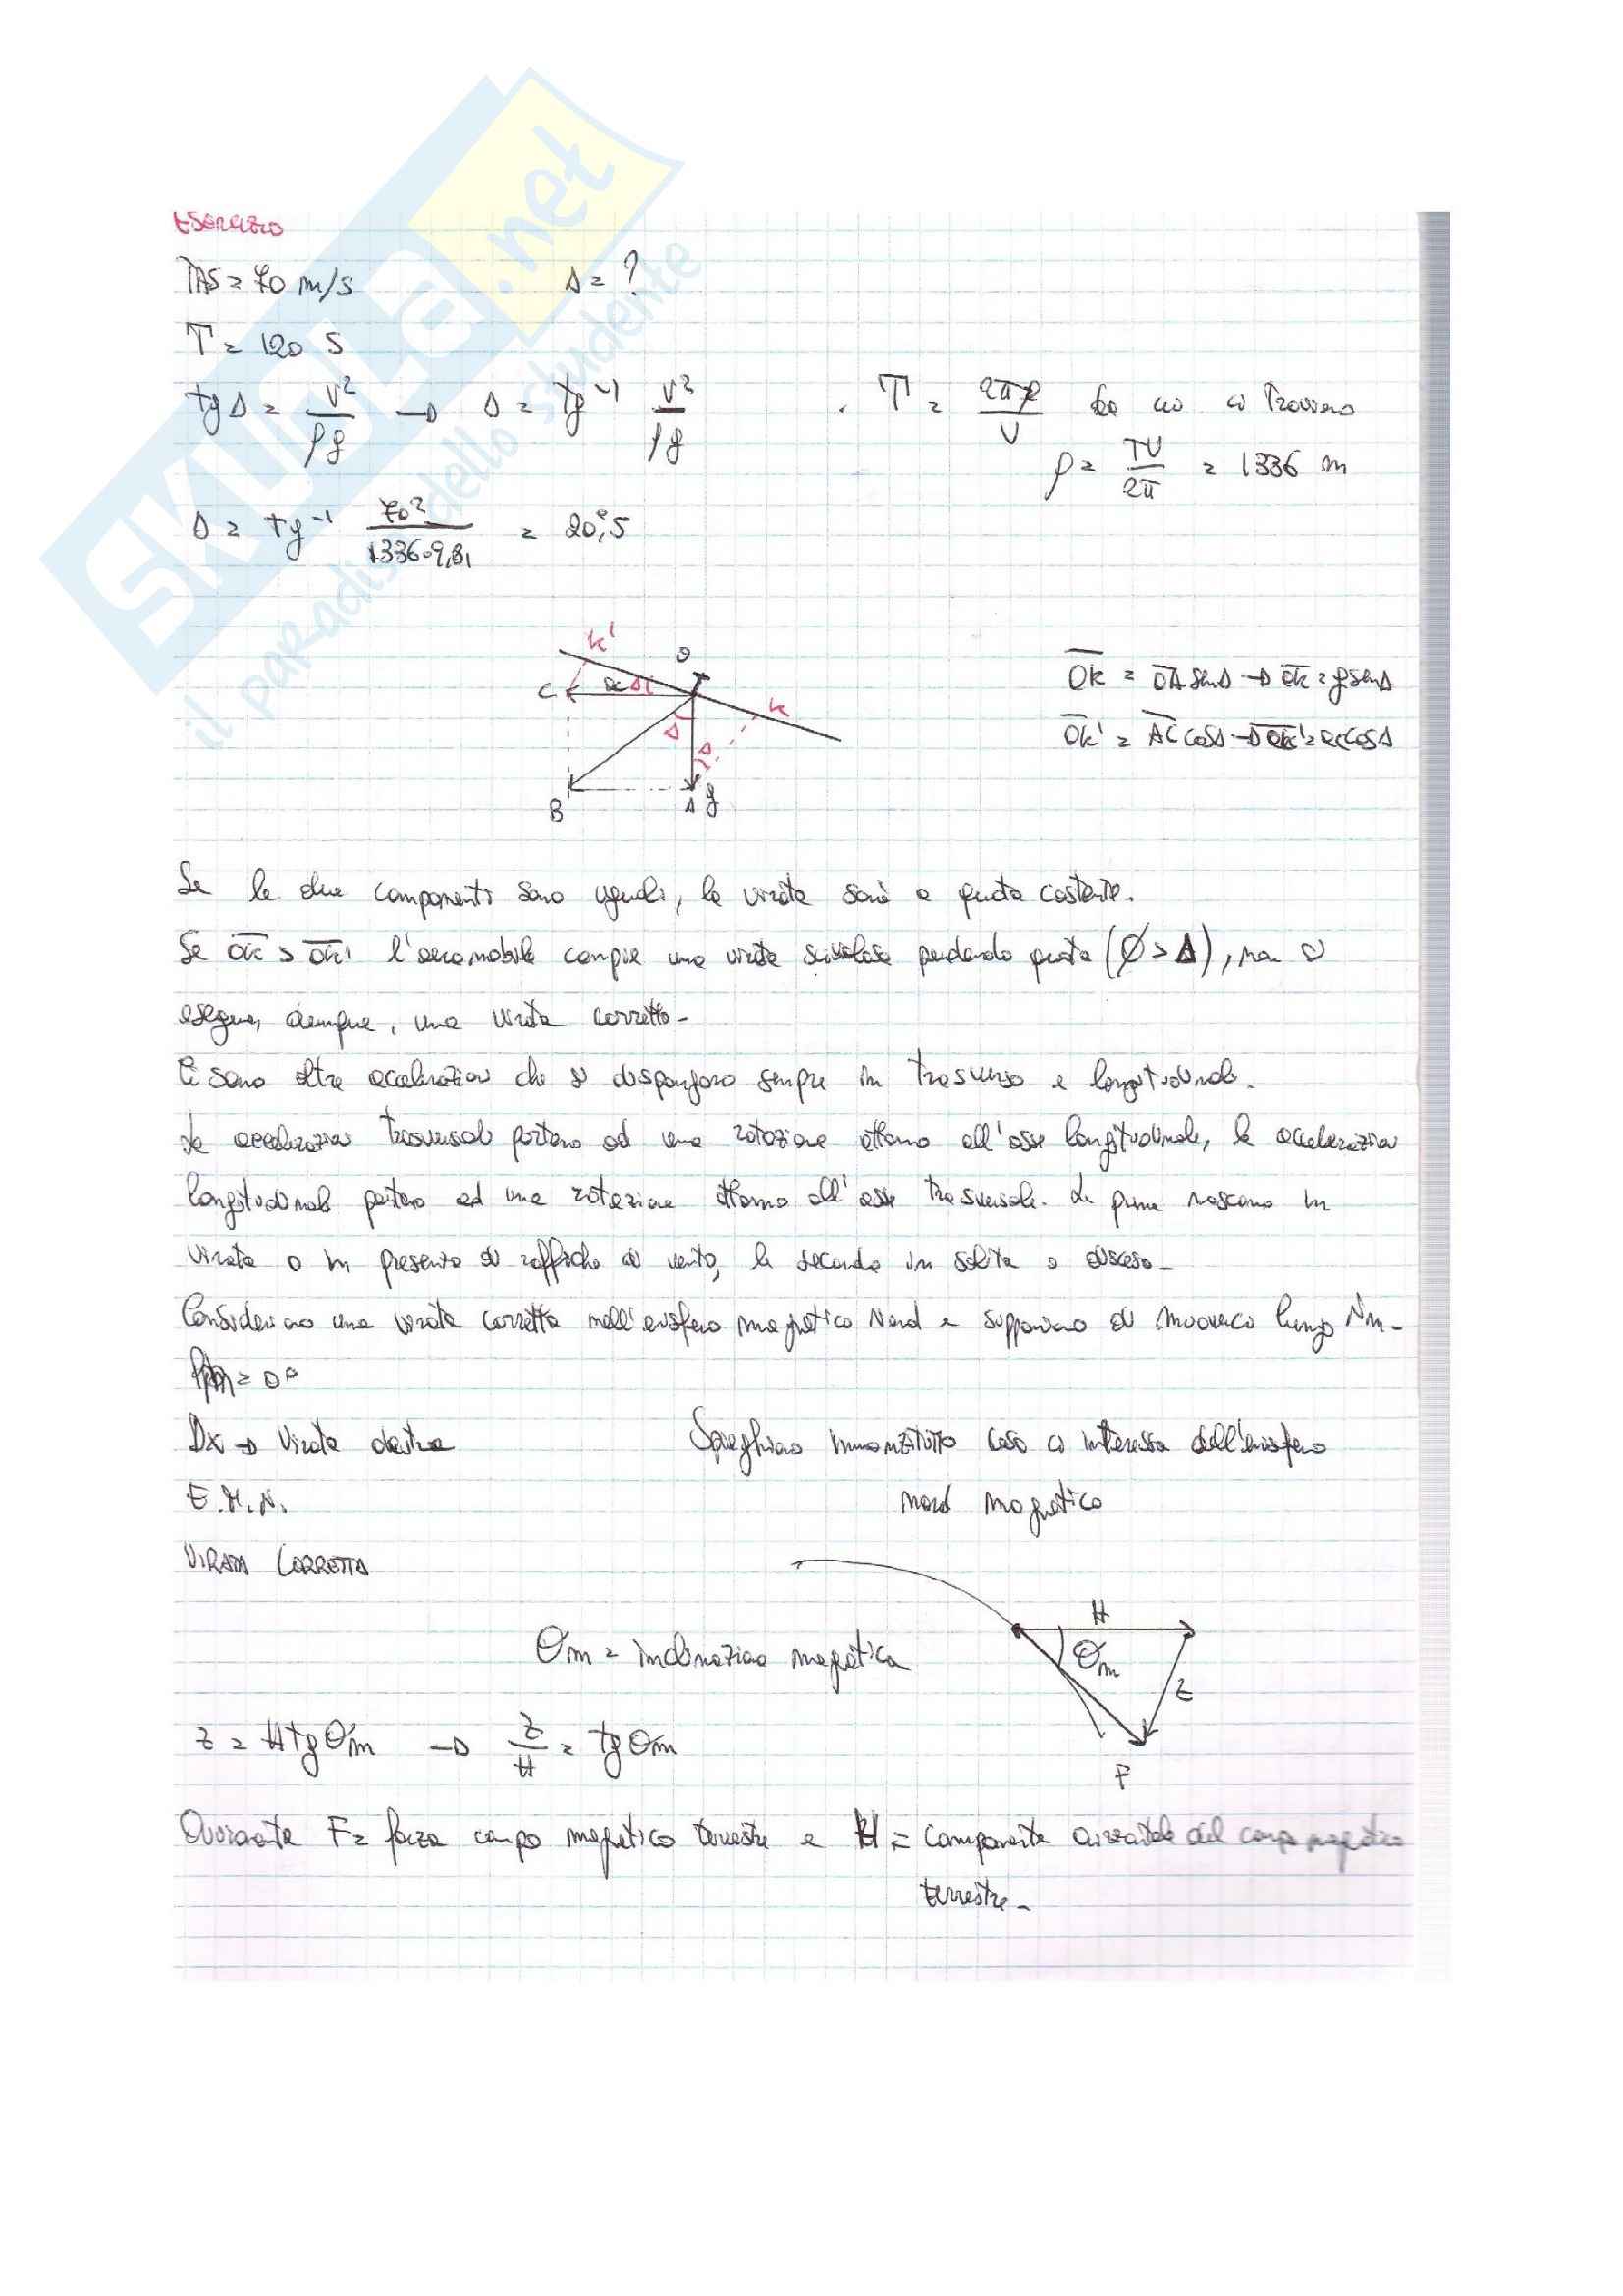 Esercizio
TAS = 70 m/s Δ = ?
T = 120 s
tg Δ = V²/ρg → Δ = tg⁻¹ V²/ρg . T = 2πρ/V da cui ci troviamo
ρ = TV/2π = 1336 m
Δ = tg⁻¹ 70²/1336·9,81 = 20°,5
K'
O
C ac Δ K
Δ Δ
B A g
OK = OA senΔ → OK = g senΔ
OK' = AC cosΔ → OK' = ac cosΔ
Se le due componenti sono uguali, la virata sarà a quota costante.
Se OK > OK' l'aeromobile compie una virata scivolata perdendo quota (Ø > Δ), non si
esegue, dunque, una virata corretta.
Ci sono altre accelerazioni che si dispongono sempre in trasverso e longitudinale.
Le accelerazioni trasversali portano ad una rotazione attorno all'asse longitudinale, le accelerazioni
longitudinali portano ad una rotazione attorno all'asse trasversale. Le prime nascono in
virata o in presenza di raffiche di vento, le seconde in salita o discesa.
Consideriamo una virata corretta nell'emisfero magnetico Nord e supponiamo di muoverci lungo Nm.
Pm = 0°
Dx → Virata destra Spieghiamo innanzitutto cosa ci interessa dell'emisfero
E.M.N. nord magnetico
VIRATA CORRETTA
H
θm = inclinazione magnetica θm
Z
Z = H tg θm → Z/H = tg θm
F
Ovviamente F = forza campo magnetico terrestre e H = componente orizzontale del campo magnetico
terrestre.
SKUOLA.net
il paradiso dello studente